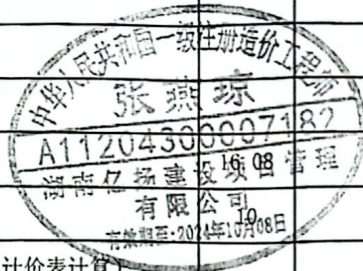 中华人民共和国一级注册造价工程师
张燕琼
A11204300007182
16.08
湖南亿扬建设项目管理
有限公司
10
有效期至:2024年10月08日
计价表计算)